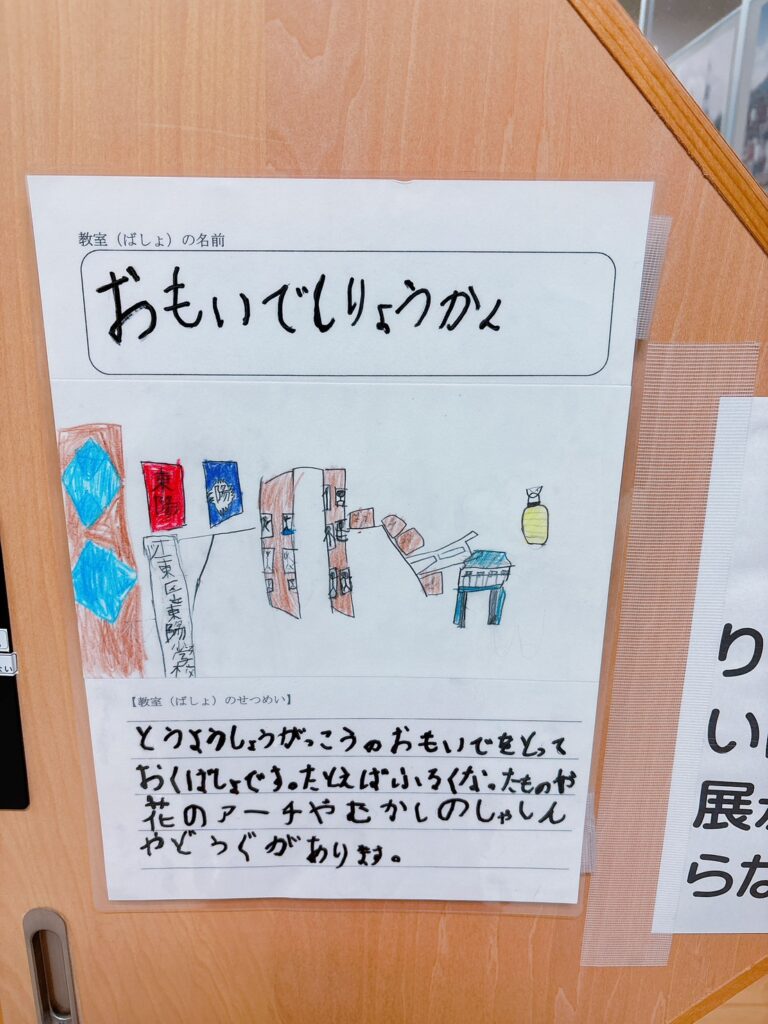 教室（ばしょ）の名前
おもいでしりょうかん
東陽
陽
江東区立東陽小学校
【教室（ばしょ）のせつめい】
とうようしょうがっこうのおもいでをとって
おくばしょです。たとえばふるくなったものや
花のアーチやむかしのしゃしん
やどうぐがあります。
り
い
展
らな